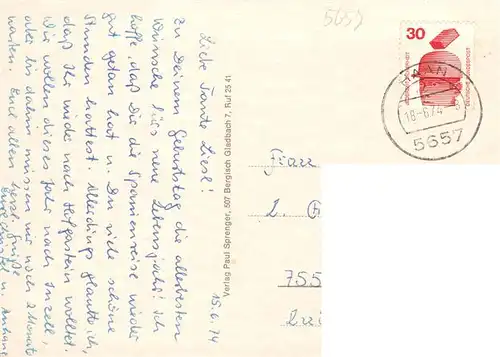 15.6.74
Liebe Tante Liesl!
Zu Deinem Geburtstag die allerbesten
Wünsche fürs neue Lebensjahr! Ich
hoffe, daß Dir die Spanienreise wieder
gut getan hat u. Du viele schöne
Stunden hattest. Allerdings glaubte ich,
daß Ihr wieder nach Hofgastein wolltet.
Wir wollen dieses Jahr nach Inzell,
aber bis dahin müssen wir noch 2 Monate
warten. Euch allen
herzl. Grüße
Eure Christel u.
Verlag Paul Sprenger, 507 Bergisch Gladbach 7, Ruf 25 41
5657
30
DEUTSCHE BUNDESPOST
HAAN
18-6.74
5657
Frau
755